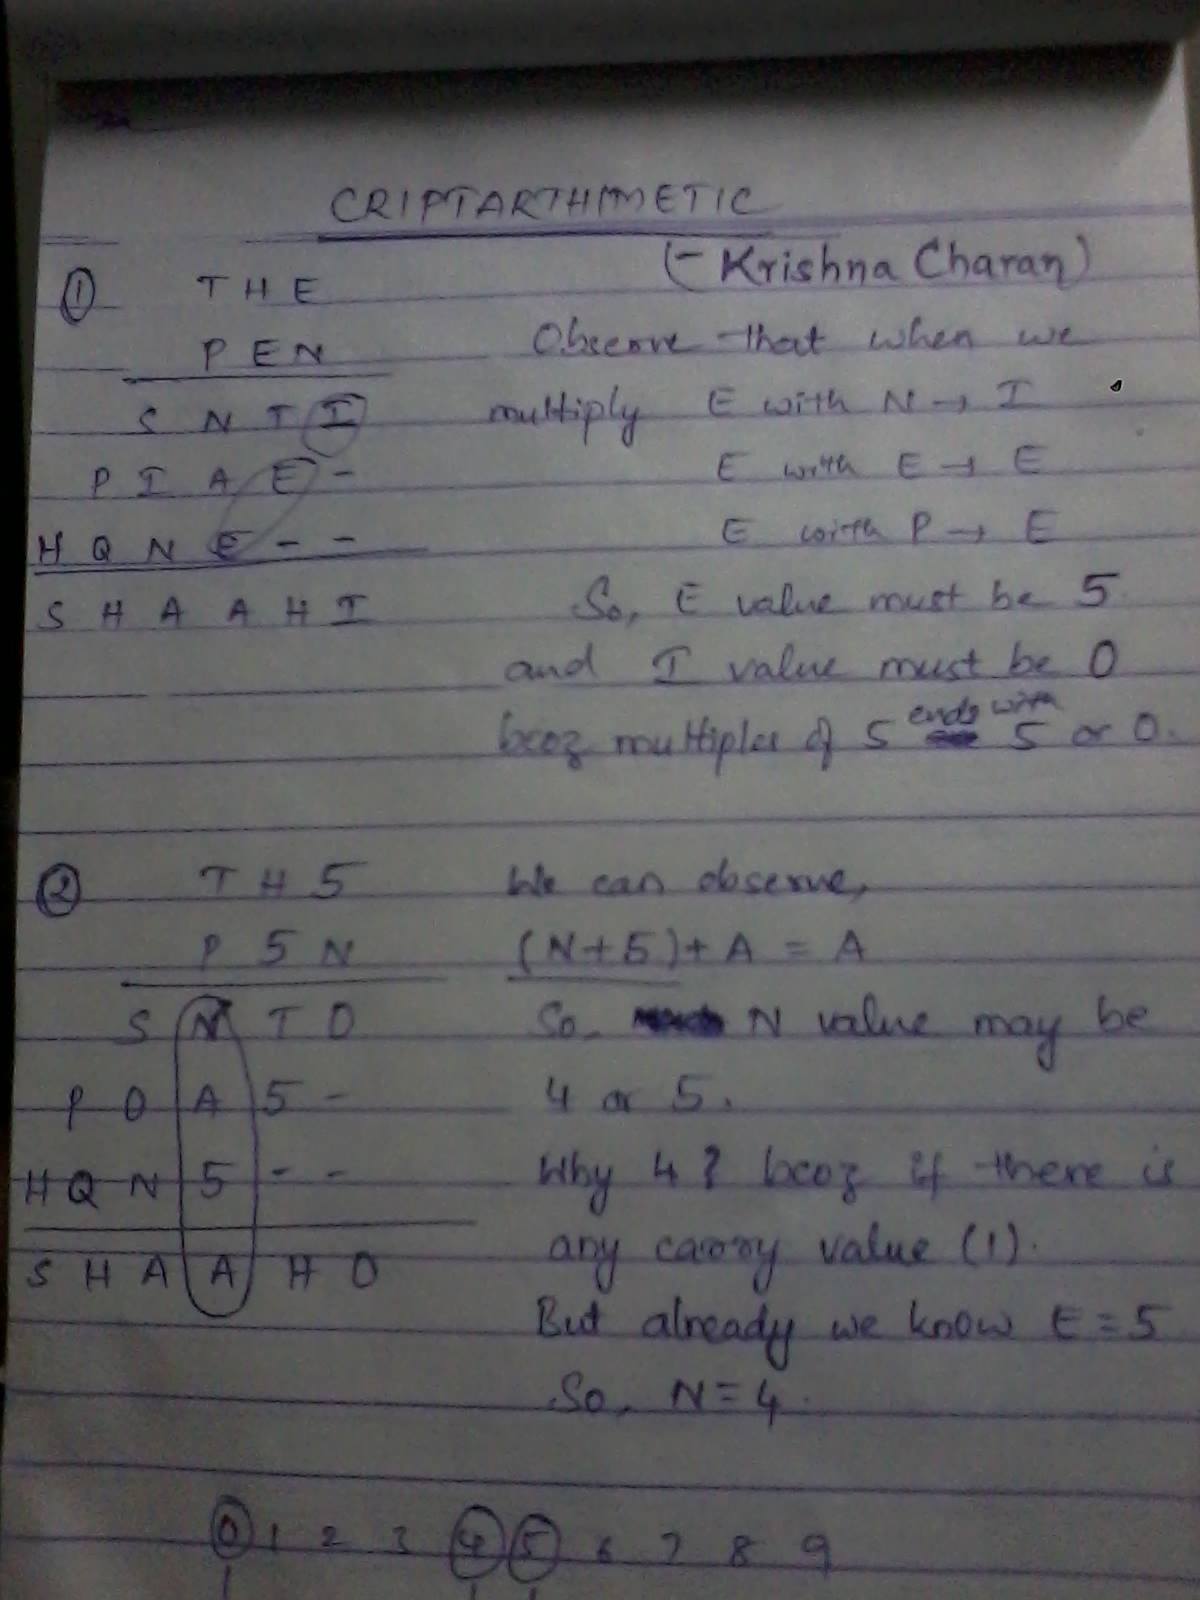 CRIPTARTHIMETIC
(- Krishna Charan)
① T H E
P E N
S N T I
P I A E -
H Q N E - -
S H A A H I
Observe that when we
multiply E with N → I
E with E → E
E with P → E
So, E value must be 5
and I value must be 0
bcoz multiples of 5 ends with 5 or 0.
② T H 5
P 5 N
S N T 0
P 0 A 5 -
H Q N 5 - -
S H A A H 0
We can observe,
(N+5)+A = A
So, N value may be
4 or 5.
Why 4? bcoz if there is
any carry value (1).
But already we know E = 5
So, N = 4.
0 1 2 3 4 5 6 7 8 9